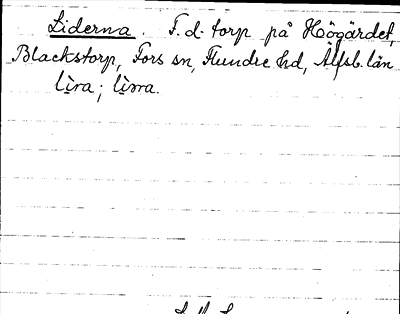 Liderna. F.d. torp på Högärdet,
Blackstorp, Fors sn, Flundre hd, Älfsb. län
lìra; lìrra.